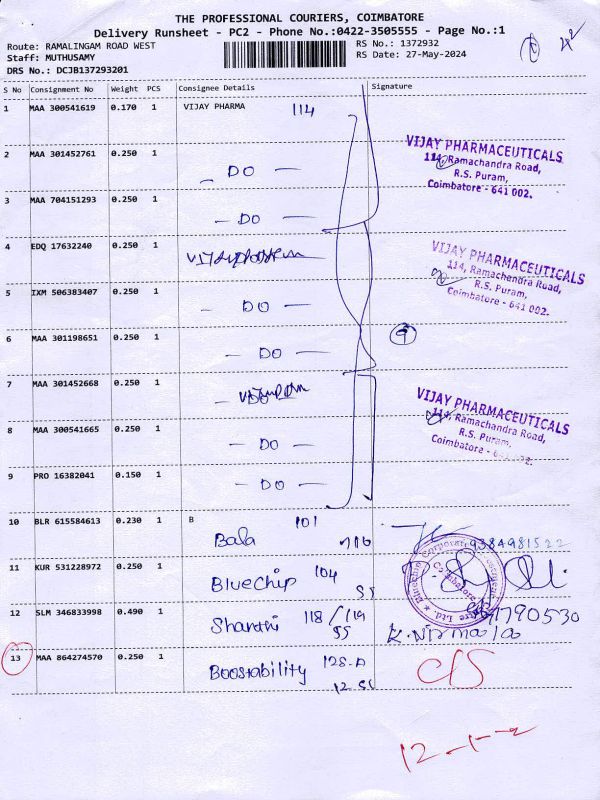 THE PROFESSIONAL COURIERS, COIMBATORE
Delivery Runsheet - PC2 - Phone No.:0422-3505555 - Page No.:1
Route: RAMALINGAM ROAD WEST
Staff: MUTHUSAMY
DRS No.: DCJB137293201
RS No.: 1372932
RS Date: 27-May-2024
S No Consignment No Weight PCS Consignee Details Signature
1 MAA 300541619 0.170 1 VIJAY PHARMA 114
VIJAY PHARMACEUTICALS
114, Ramachandra Road,
R.S. Puram,
Coimbatore - 641 002.
2 MAA 301452761 0.250 1 - DO -
3 MAA 704151293 0.250 1 - DO -
4 EDQ 17632240 0.250 1
VIJAY PHARMACEUTICALS
114, Ramachendra Road,
R.S. Puram,
Coimbatore - 641 002.
5 IXM 506383407 0.250 1 - DO -
6 MAA 301198651 0.250 1 - DO - 9
7 MAA 301452668 0.250 1
VIJAY PHARMACEUTICALS
114, Ramachandra Road,
R.S. Puram,
Coimbatore -
8 MAA 300541665 0.250 1 - DO -
9 PRO 16382041 0.150 1 - DO -
10 BLR 615584613 0.230 1 B 101
Bala
11 KUR 531228972 0.250 1 Bluechip 104
SS
Coimbatore
12 SLM 346833998 0.490 1 Shanthi 118 / 119
SS
13 MAA 864274570 0.250 1 Boostability 128-A
12 SS